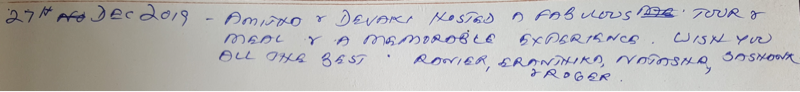 27th Dec 2019 - AMITHA & DEVAKI HOSTED A FABULOUS TOUR &
MEAL & A MEMORABLE EXPERIENCE. WISH YOU
ALL THE BEST. RANIER, ERANTHIKA, NATASHA, SASHANK
& ROGER.